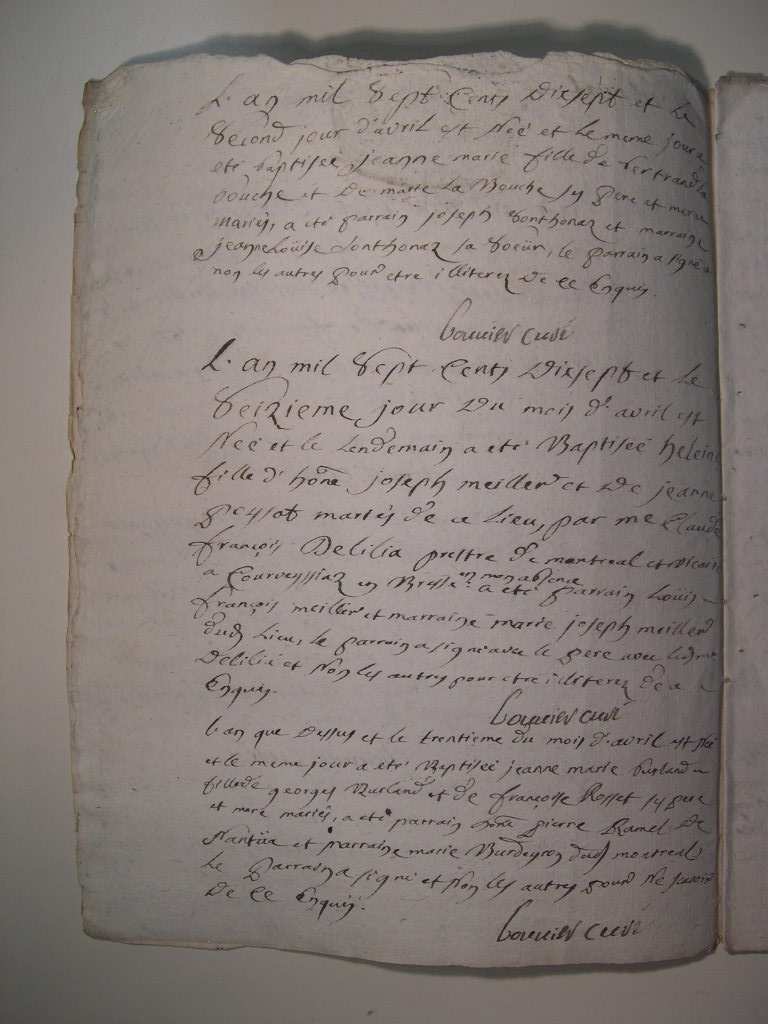 L'an mil Sept Cents Dixsept et le
Second jour d'avril est Neé et le meme jour a
eté baptiseé jeanne marie fille de bertrand la
bouche et De marie La Bouche Sy pere et mere
mariés, a eté parrain joseph Sonthonax et marraine
jeanne Loüise Sonthonax sa Soeur, le parrain a signé et
non les autres pour etre illiterez De ce Enquis.
curé
L'an mil Sept Cents Dixsept et le
Seizieme jour Du mois d'avril est
Neé et le Lendemain a eté Baptiseé heleine
fille d'hone joseph meiller et De jeanne
mariés de ce Lieu, par me Claude
françois Delilia prestre de montreal et vicaire
a Courveyssiaz en Bresse en mon absence a eté parrain Loüis
françois meiller et marraine marie joseph meiller
dud Lieu, le parrain a signé avec le pere avec led me
Delilia et Non les autres pour etre illiterez de ce
Enquis.
curé
L'an que Dessus et le trentieme du mois d'avril est Neé
et le meme jour a eté Baptiseé jeanne marie burland
fille de georges Burland et de françoise Rosset sy pere
et mere mariés, a eté parrain hone pierre Ramel De
Nantüa et marraine marie Burdeyron dud montreal
Le parrain a signé et Non les autres pour Ne savoir
De ce Enquis.
curé